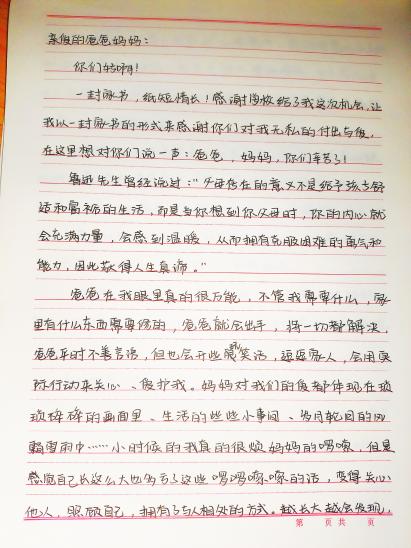 亲爱的爸爸妈妈：
你们好啊！
一封家书，纸短情长！感谢学校给了我这次机会，让
我以一封家书的形式来感谢你们对我无私的付出与爱，
在这里想对你们说一声：爸爸，妈妈，你们辛苦了！
鲁迅先生曾经说过：“父母存在的意义不是给予孩子舒
适和富裕的生活，而是当你想到你父母时，你的内心就
会充满力量，会感到温暖，从而拥有克服困难的勇气和
能力，因此获得人生真谛。”
爸爸在我眼里真的很万能，不管我需要什么，家
里有什么东西需要修的，爸爸就会出手，将一切都解决，
爸爸平时不善言语，但也会开些冷笑话，逗逗家人，会用实
际行动来关心、爱护我。妈妈对我们的爱都体现在琐
琐碎碎的画面里、生活的些些小事间、岁月轮回的风
霜雪雨中……小时候的我真的很烦妈妈的唠嗦，但是
感觉自己长这么大也多亏了这些唠唠嗦嗦的话，变得关心
他人，照顾自己，拥有了与人相处的方式。越长大越会发现，
第 页 共 页